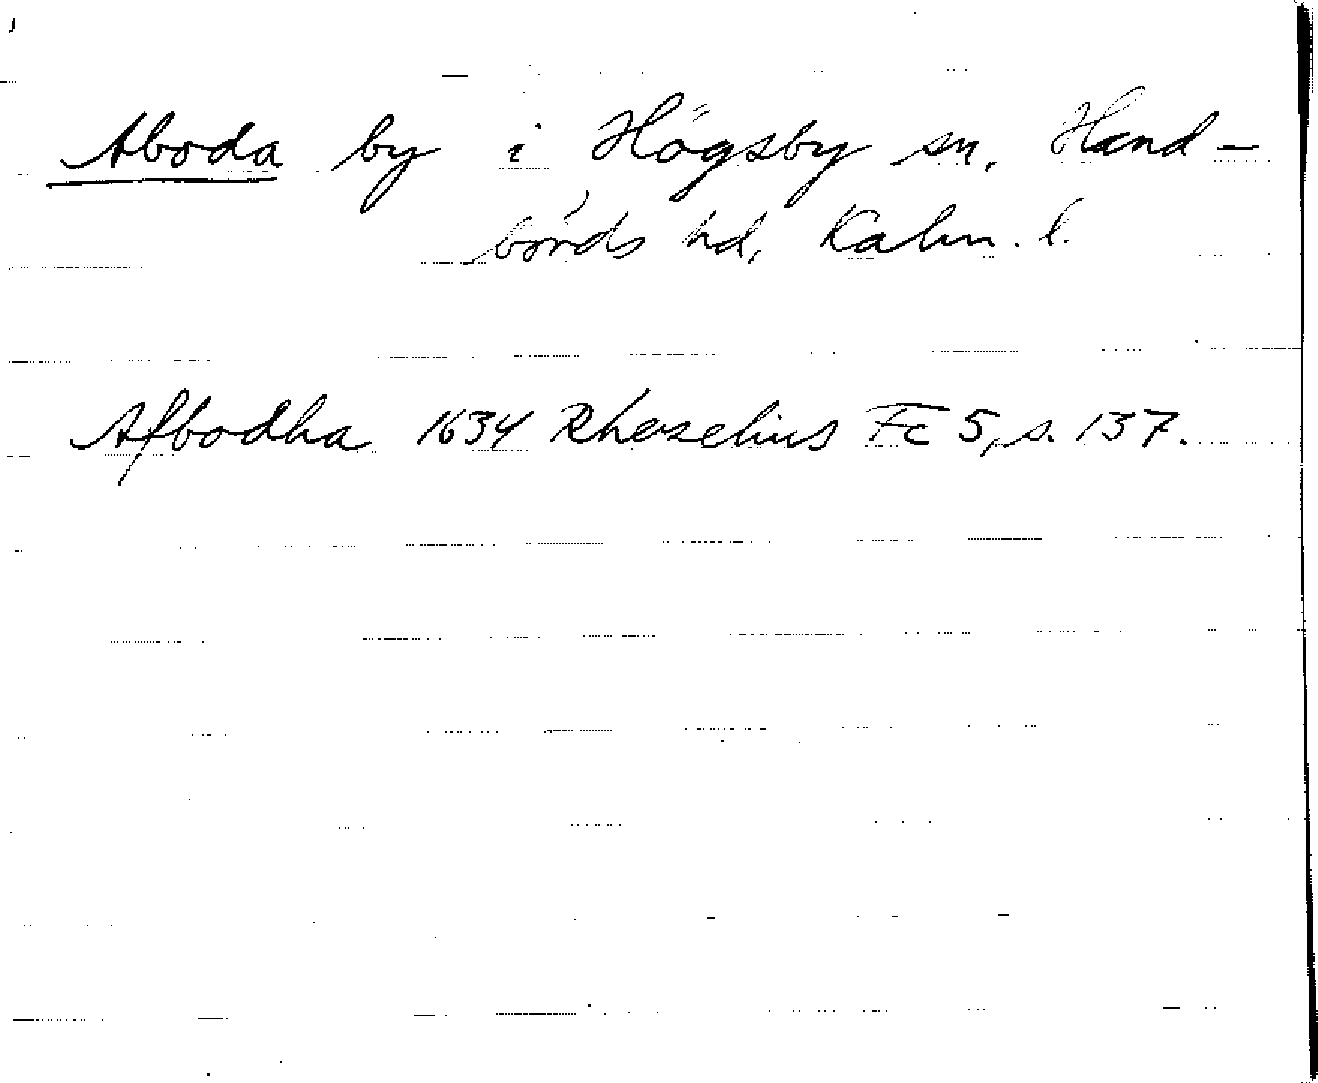 Aboda by i Högsby sn, Hand-
börds hd, Kalm. l.
Afbodha 1634 Rhezelius Fc 5, s. 137.